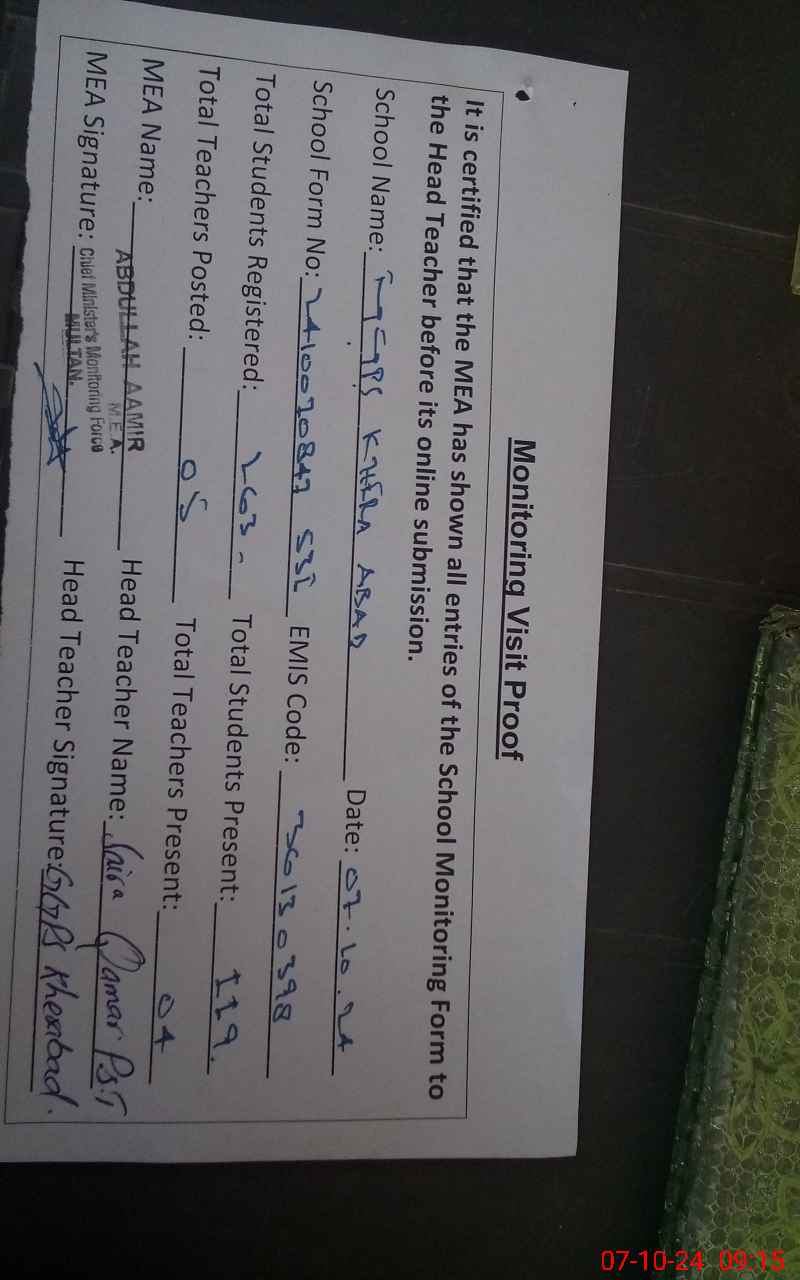 Monitoring Visit Proof
It is certified that the MEA has shown all entries of the School Monitoring Form to
the Head Teacher before its online submission.
School Name: GGPS KHERA ABAD Date: 07.10.24
School Form No: EMIS Code: 36130398
Total Students Registered: 263 Total Students Present: 119.
Total Teachers Posted: 05 Total Teachers Present: 04
MEA Name: ABDULLAH AAMIR Head Teacher Name: Qamar P.S.T
M E A.
Chief Minister's Monitoring Force
MULTAN.
MEA Signature: Head Teacher Signature: GGPS Kherabad.
07-10-24 09:15